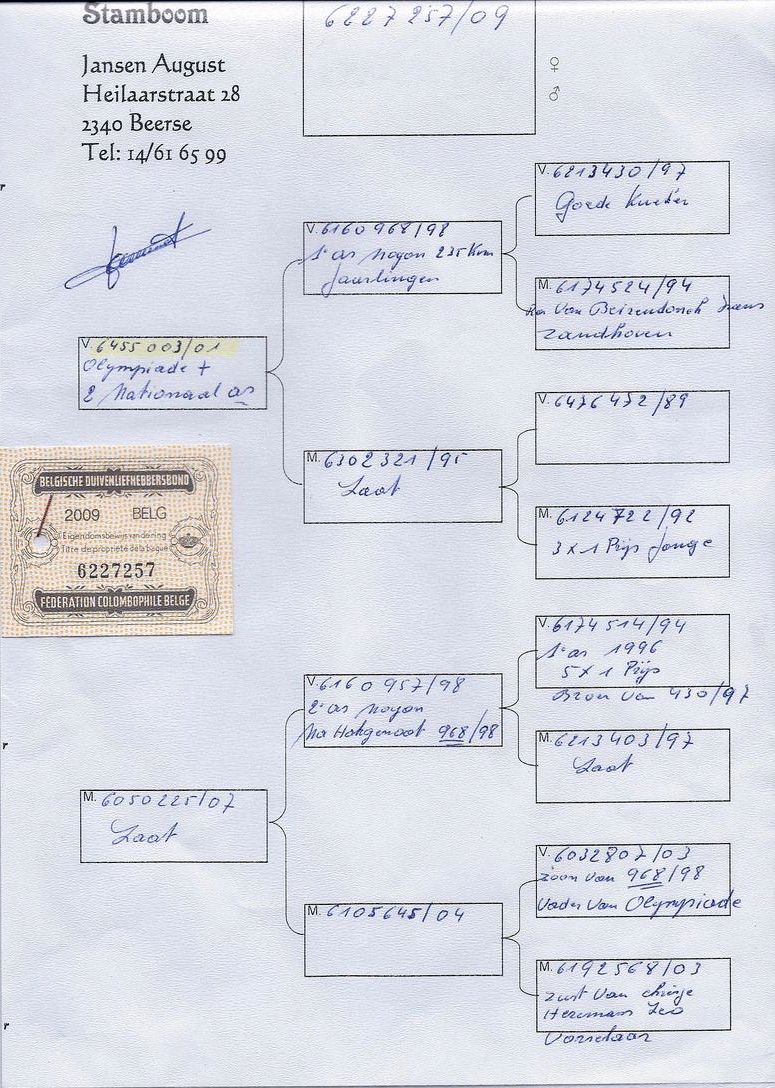 Stamboom
6227257/09
Jansen August
Heilaarstraat 28
2340 Beerse
Tel: 14/61 65 99
♀
♂
V. 6455003/01
Olympiade +
2 Nationaal as
V. 6160968/98
1e as Noyon 235 Km
Jaarlingen
V. 6213430/97
Goede Kweker
M. 6174524/94
Van Beirendonck Frans
Zandhoven
M. 6302321/95
Laat
V. 6476472/89
M. 6124722/92
3 x 1 Prijs Jonge
BELGISCHE DUIVENLIEFHEBBERSBOND
2009 BELG
Eigendomsbewijs van den ring
Titre de propriété de la bague
6227257
FÉDÉRATION COLOMBOPHILE BELGE
M. 6050225/07
Laat
V. 6160957/98
2e as Noyon
Na Hokgenoot 968/98
V. 6174514/94
1e as 1996
5 x 1 Prijs
Broer van 430/97
M. 6213403/97
Laat
M. 6105645/04
V. 6032807/03
Zoon van 968/98
Vader van Olympiade
M. 6192568/03
Zust van
Heremans Leo
Vorselaar